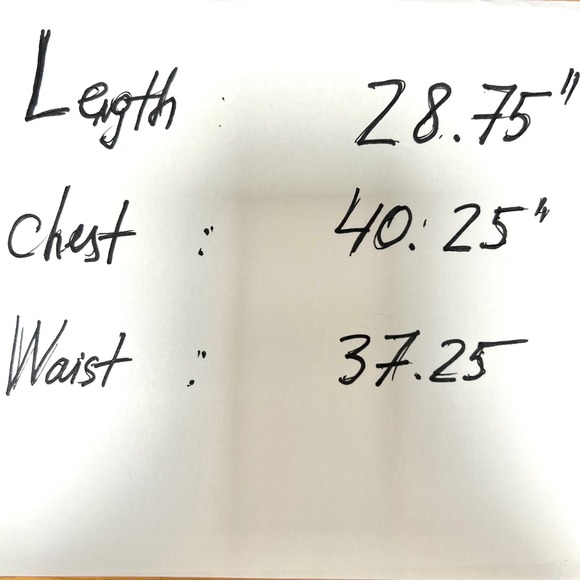 Length : 28.75"
Chest : 40.25"
Waist : 37.25